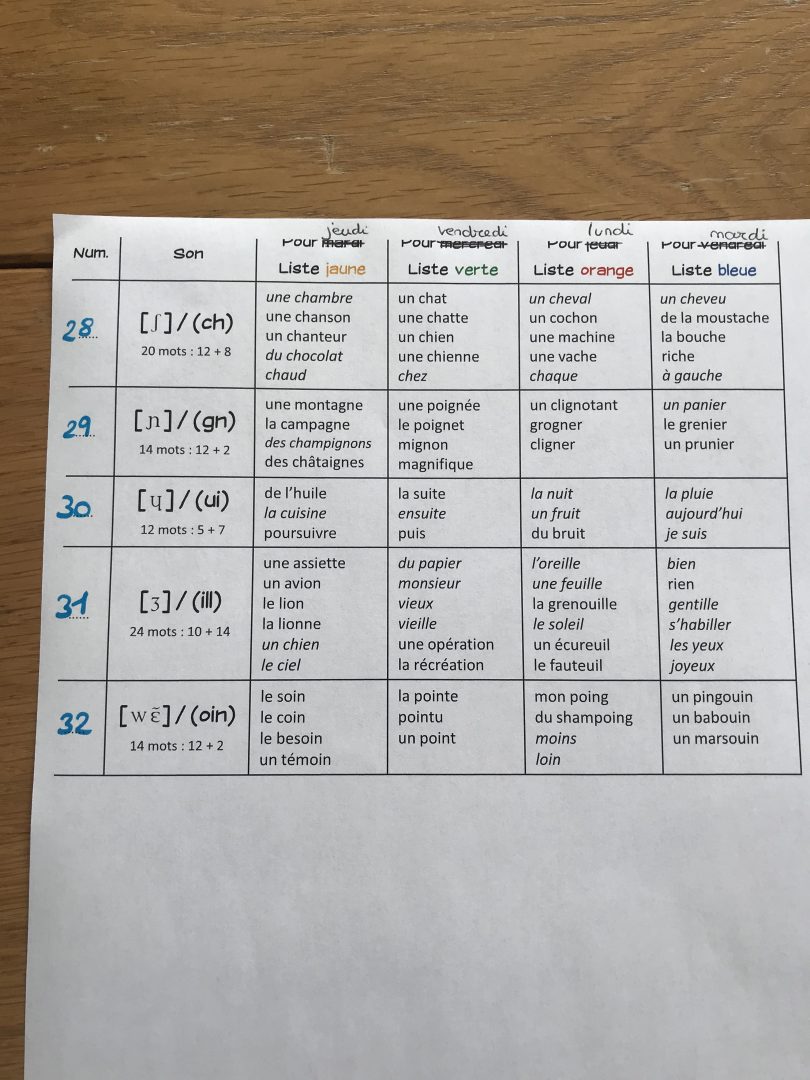 jeudi vendredi lundi mardi
Num. Son Pour mardi Pour mercredi Pour jeudi Pour vendredi
Liste jaune Liste verte Liste orange Liste bleue
28 [ʃ] / (ch)
20 mots : 12 + 8
une chambre
une chanson
un chanteur
du chocolat
chaud
un chat
une chatte
un chien
une chienne
chez
un cheval
un cochon
une machine
une vache
chaque
un cheveu
de la moustache
la bouche
riche
à gauche
29 [ɲ] / (gn)
14 mots : 12 + 2
une montagne
la campagne
des champignons
des châtaignes
une poignée
le poignet
mignon
magnifique
un clignotant
grogner
cligner
un panier
le grenier
un prunier
30 [ɥ] / (ui)
12 mots : 5 + 7
de l’huile
la cuisine
poursuivre
la suite
ensuite
puis
la nuit
un fruit
du bruit
la pluie
aujourd’hui
je suis
31 [ʒ] / (ill)
24 mots : 10 + 14
une assiette
un avion
le lion
la lionne
un chien
le ciel
du papier
monsieur
vieux
vieille
une opération
la récréation
l’oreille
une feuille
la grenouille
le soleil
un écureuil
le fauteuil
bien
rien
gentille
s’habiller
les yeux
joyeux
32 [wɛ̃] / (oin)
14 mots : 12 + 2
le soin
le coin
le besoin
un témoin
la pointe
pointu
un point
mon poing
du shampoing
moins
loin
un pingouin
un babouin
un marsouin